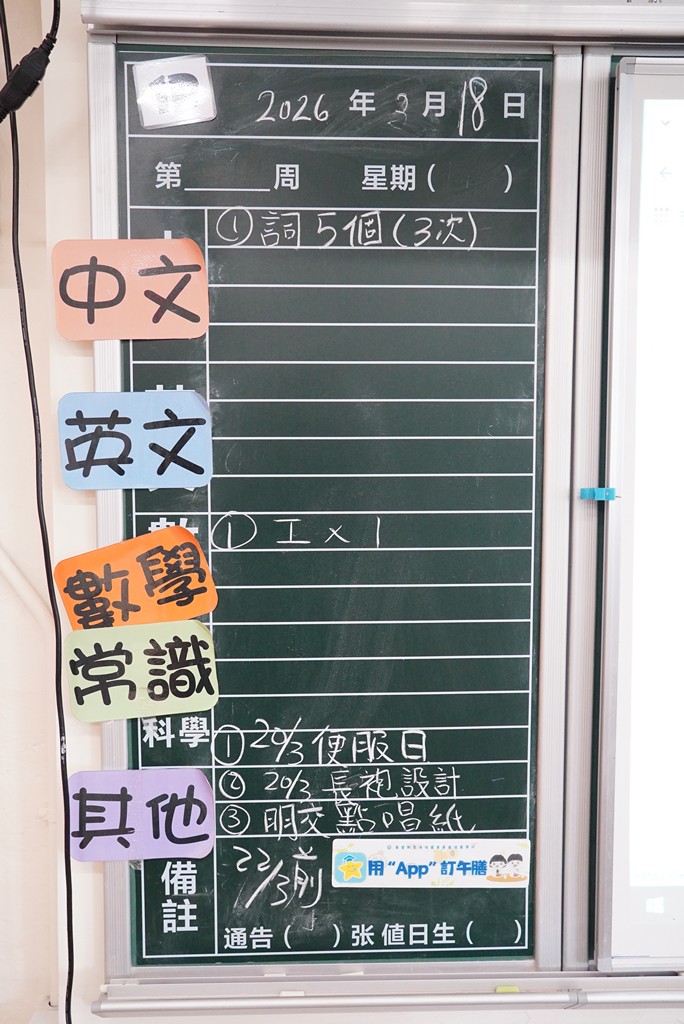 2026 年 3 月 18 日
第 周 星期( )
中文
① 詞5個(3次)
英文
數
數學
① 工×1
常識
科學
① 20/3 便服日
② 20/3 長袍設計
③ 明交點唱紙
其他
備註
22/3前
用 "App" 訂午膳
通告( )张 值日生( )